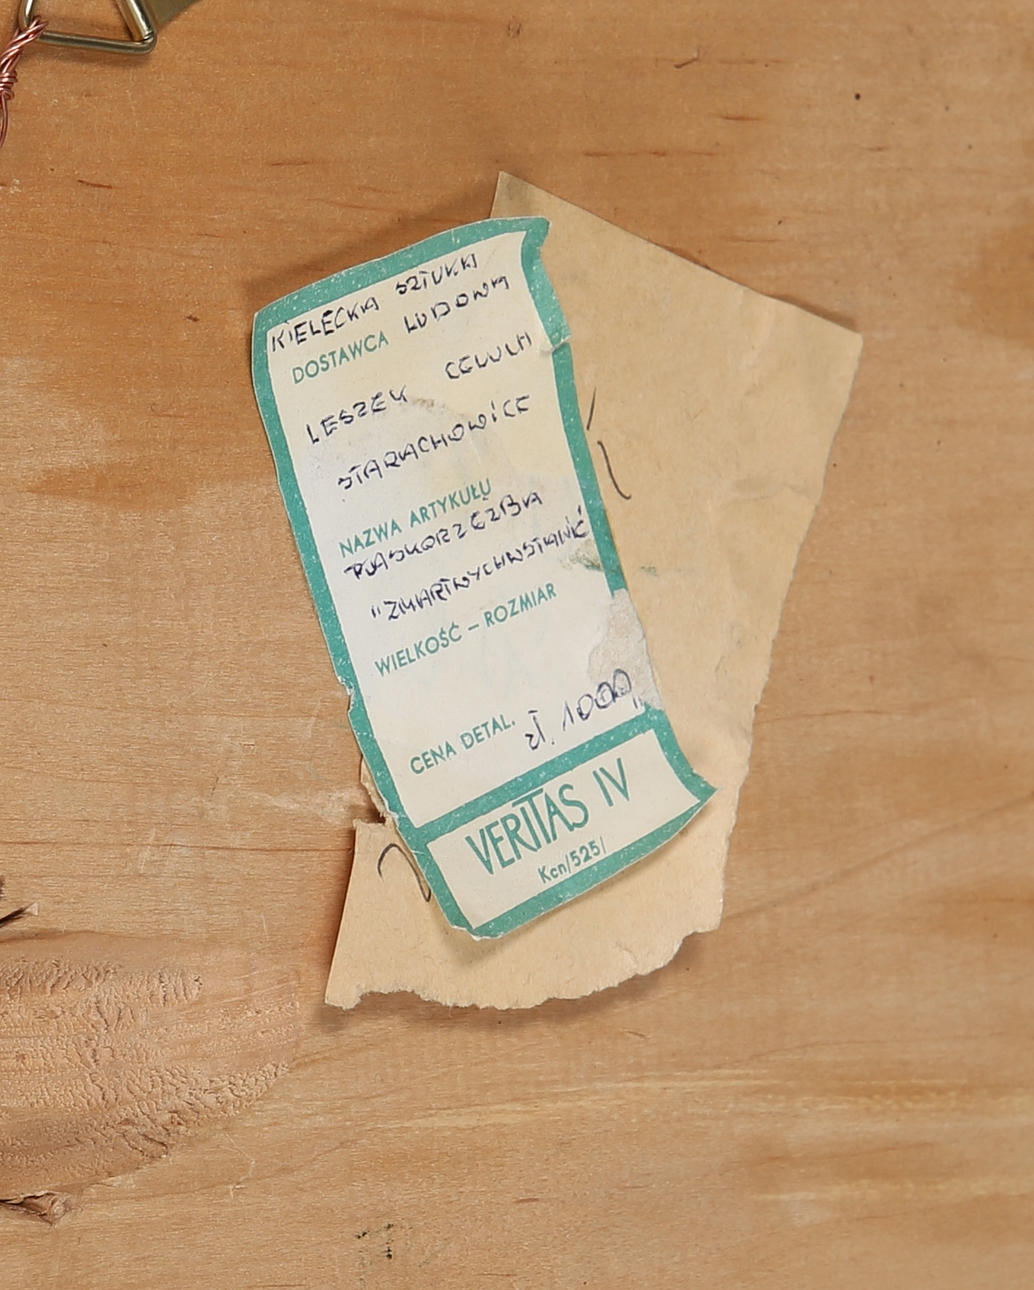 KIELECKA SZTUKA
DOSTAWCA LUDOWA
LESZEK CELUCH
STARACHOWICE
NAZWA ARTYKUŁU
PŁASKORZEŹBA
"ZMARTWYCHWSTANIE"
WIELKOŚĆ – ROZMIAR
CENA DETAL.
VERITAS IV
Kcn/525/